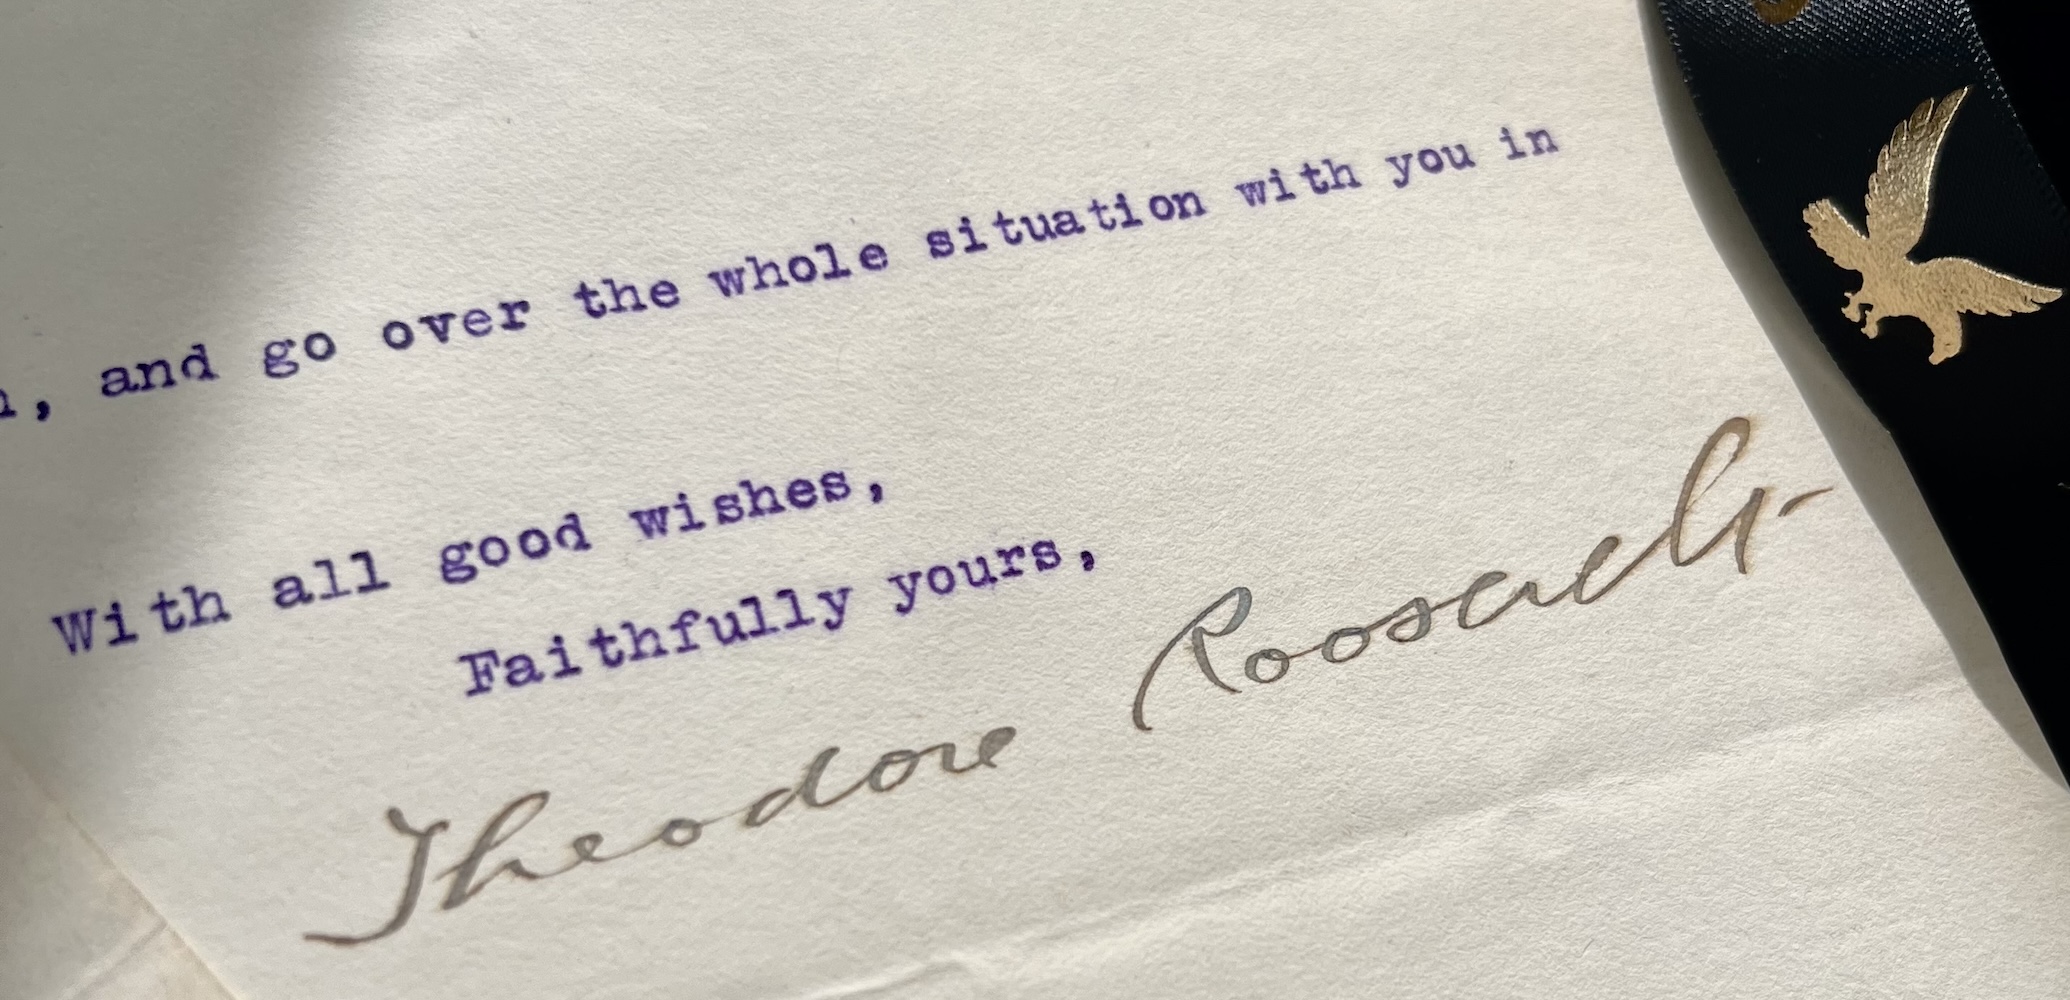 , and go over the whole situation with you in
With all good wishes,
Faithfully yours,
Theodore Roosevelt